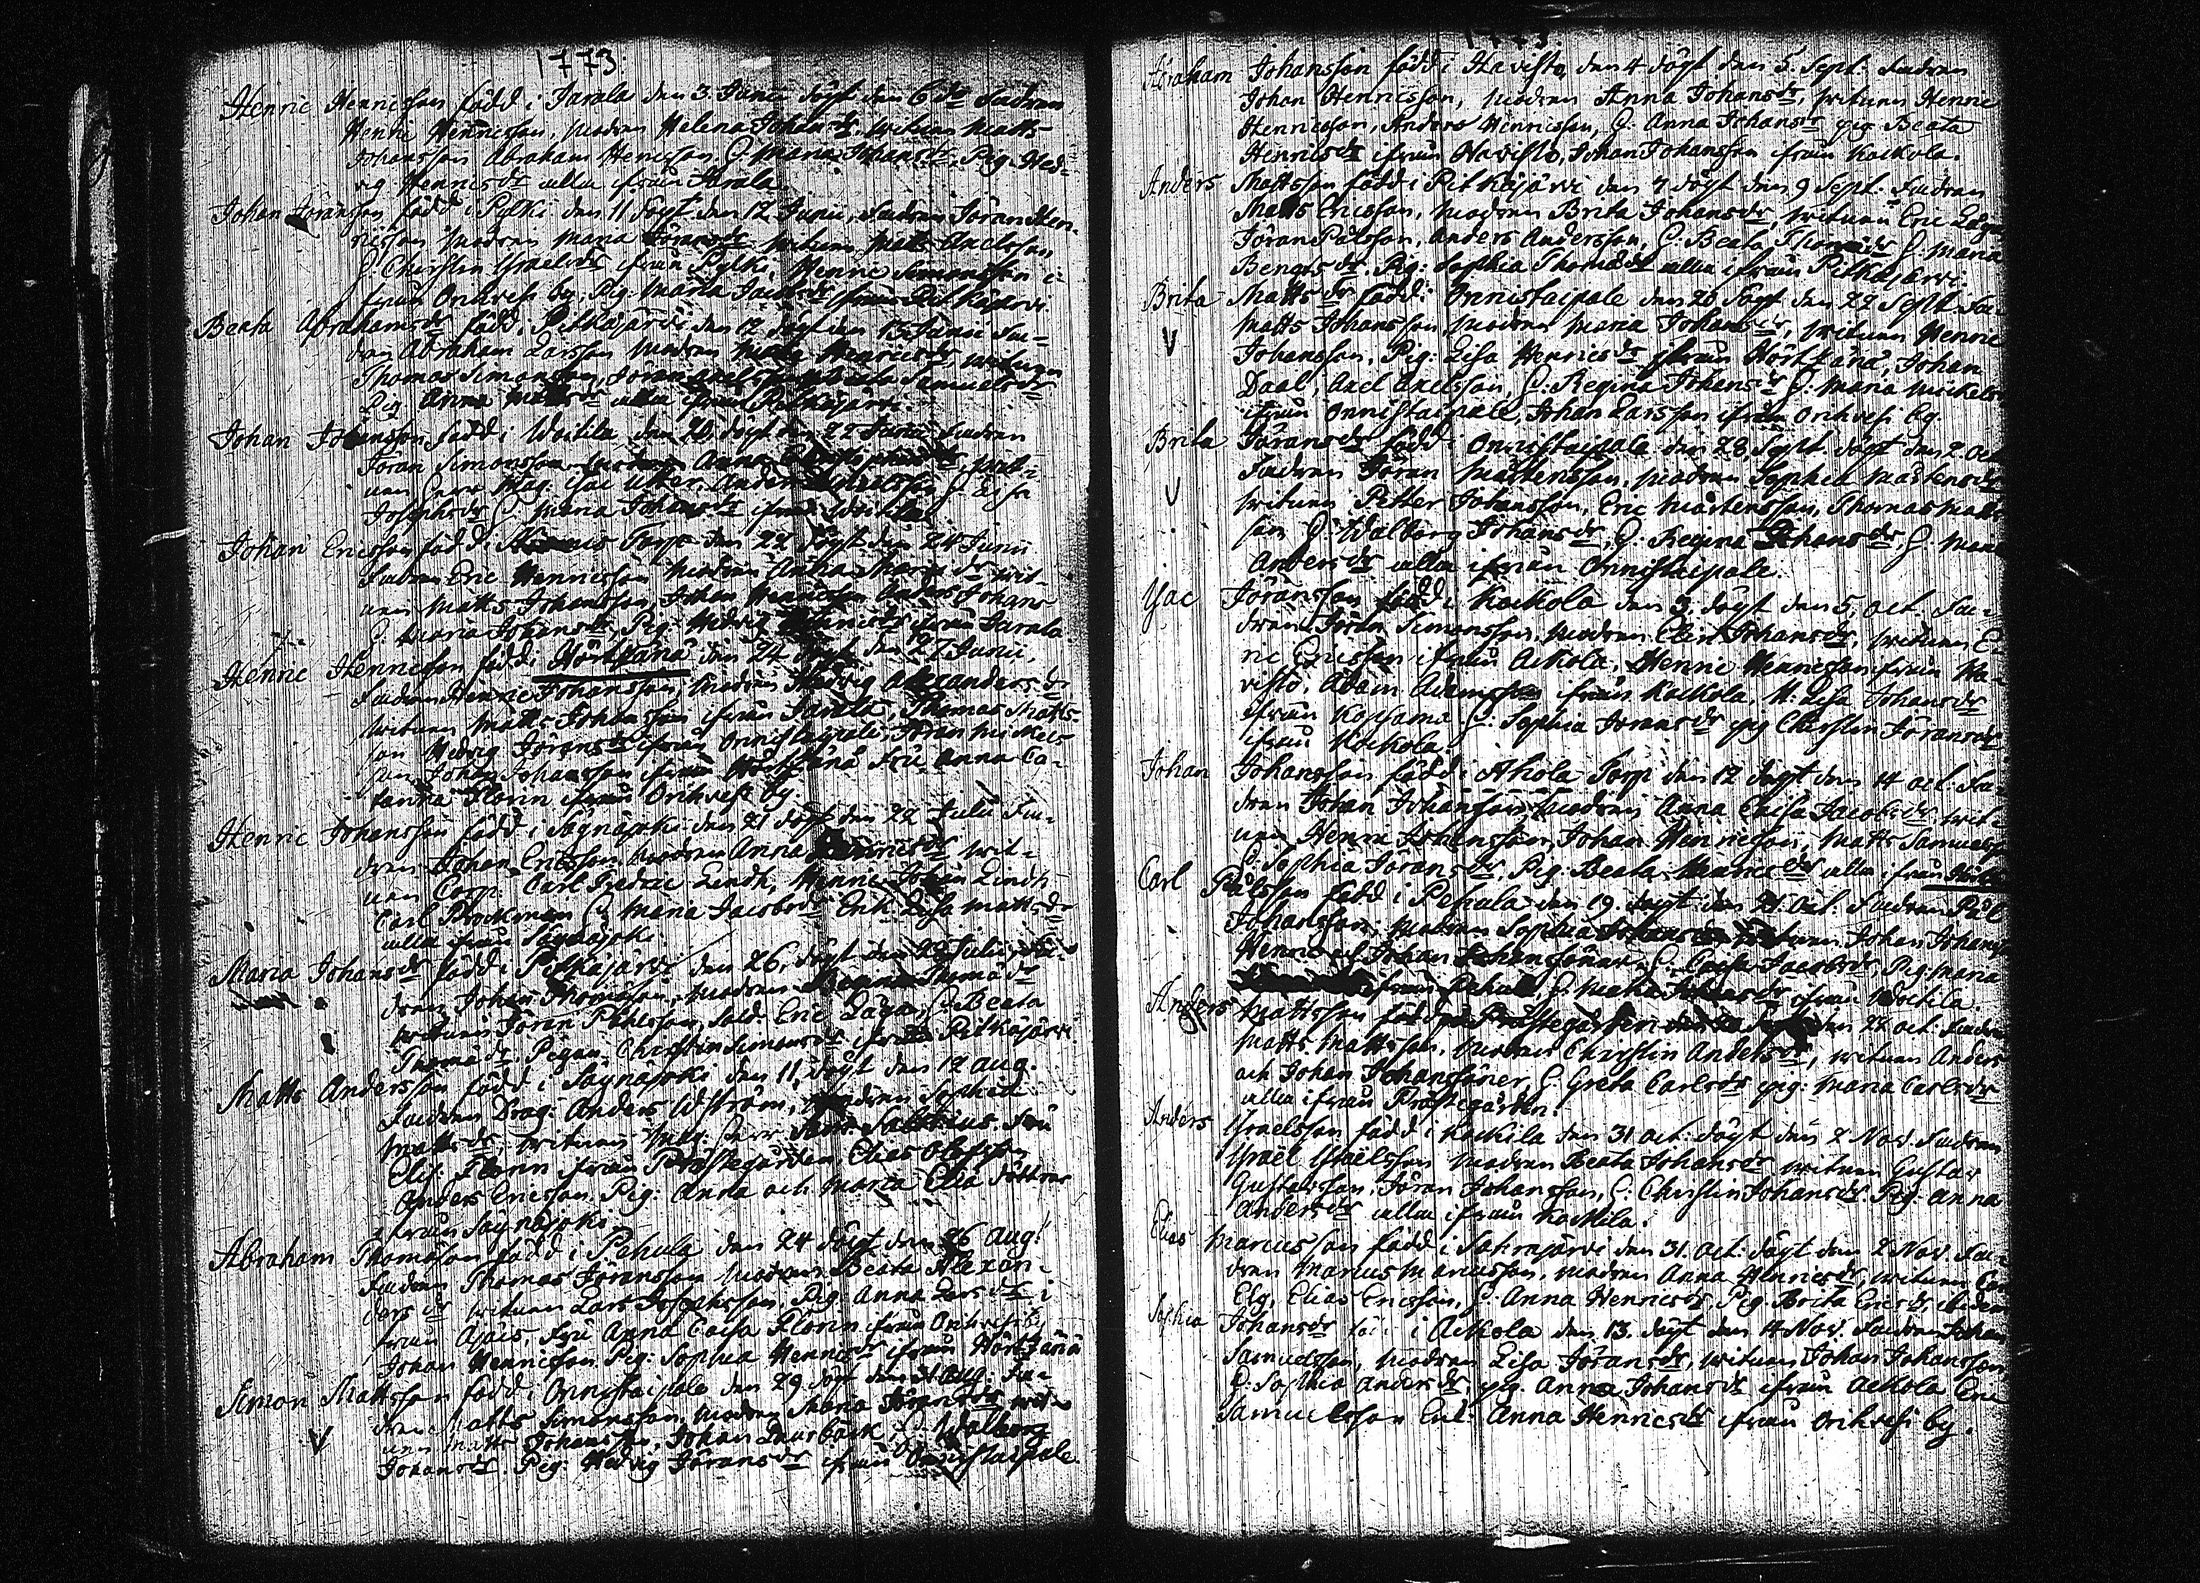 1773
Henric Henricsson född i Jarala den 3. Junii döpt den 6 do Fadren
Henric Henricsson, modren Helena Johansdr, witnen Matts
Johansson Abraham Henricsson, H. Maria Johansdr, Pig. Hed-
vig Henricsdr alla ifrån Jarala
Johan Göransson född i Pylki den 11 döpt den 12 Junii, Fadren Göran Hen-
ricsson modren Maria Göransdr witnen Matts Axelsson,
H. Christin Israelsdr ifrån Pylki, Henric Simonsson i-
från Orihvesi by, Pig. Maria Jacobsdr ifrån Pitkäjärvi
Beata Abrahamsdr född i Pitkäjärvi den 12 döpt den 13 Junii Fa-
dren Abraham Larsson modren Maria Henricsdr, witnen
Thomas Simonsson, Göran Axelsson, Beata Samuelsdr
Pig Anna Mattsdr alla ifrån Pitkäjärvi.
Johan Johansson född i Woitila den döpt den 22 Junii Fadren
Göran Simonsson modren Anna wit-
nen Herr Mag. Isac Utter, Anders H. Lisa
Josephsdr H. Maria Johansdr ifrån Woitila
Johan Ericsson född i Torp den 22 döpt den 24 Junii
Fadren Eric Henricsson modren Anna wit-
nen Matts Johansson, Johan Henricsson Anders Johans
H. Maria Johansdr, Pig. Hedvig Henricsdr ifrån Jarala
Henric Henricsson född i Hörtsänä den 24 döpt den 27 Junii,
Fadren Henric Johansson, modren Hedvig Alexandersdr
witnen Matts Johansson ifrån Jarala, Thomas Matts-
son Hedvig Göransdr ifrån Onnistaipale, Göran Mickels-
son Johan Johansson ifrån Hörtsänä Fru Anna Ca-
tarina Florin ifrån Orihvesi by
Henric Johansson född i Sägnäjoki den 21 döpt den 22 Julii Fa-
dren Johan Ericsson modren Anna Henricsdr wit-
nen Corp. Carl Fredric Lindh, Henric Johan Lindh
Carl Brockman H. Maria Jacobsdr Enk. Lisa Mattsdr
alla ifrån Sägnäjoki.
Maria Johansdr född i Pitkäjärvi den 26, döpt den 28 Julii, Fa-
dren Johan Thomasson, modren Thomädr
witnen Göran Påhlsson, Sold. Eric Laga, H. Beata
Thomädr, Pigan Christin Simonsdr ifrån Pitkäjärvi
Matts Andersson född i Sägnäjoki den 11, döpt den 12 Aug.
Fadren Drag: Anders Wström, modren Sophia
Mattsdr, witnen Mag. Herr Fru
Elis. Florin ifrån Prästegården Elias Olofsson
Anders Ericsson. Pig: Anna och Maria Elia döttrar
ifrån Sägnäjoki.
Abraham Thomasson född i Pehula den 24 döpt den 26 Aug:
Fadren Thomas Göransson modren Beata Alexan-
dersdr witnen Lars Josephsson, Pig: Anna Larsdr i
från Ajais, Fru Anna Caisa Florin ifrån Orihvesi by
Johan Henricsson Pig: Sophia Henricsdr ifrån Hörtsänä
Simon Mattsson född i Onnistaipale den 29 döpt den 31 Aug: Fa-
dren Matts Simonsson, modren Maria Göransdr wit-
nen Matts Johansson, Johan Laurbäck, H. Walborg
Johansdr. Pig: Hedvig Göransdr ifrån Onnistaipale
1773
Abraham Johansson född i Havisto, den 4 döpt den 5 Sept. Fadren
Johan Henricsson, modren Anna Johansdr, witnen Henric
Henricsson, Anders Henricsson, H. Anna Johansdr pig Beata
Henricsdr ifrån Havisto, Johan Johansson ifrån Kockola.
Anders Mattsson född i Pitkäjärvi den 7 döpt den 9 Sept: Fadren
Matts Ericsson, modren Brita Johansdr, witnen Eric Laga
Göran Pålsson, Anders Andersson, H. Beata Thomädr H. Maria
Bengtsdr. Pig: Sophia Thomädr alla ifrån Pitkäjärvi.
Brita Mattsdr född i Onnistaipale den 20 döpt den 22 Sept. Fa-
Matts Johansson modren Maria Johansdr, witnen Henric
Johansson. Pig: Lisa Henricsdr ifrån Hörtsänä, Johan
Daal, Axel Axelsson, H. Regina Johansdr H. Maria Mickelsdr
ifrån Onnistaipale, Johan Larsson ifrån Orihvesi by.
Brita Göransdr född i Onnistaipale den 28 Sept. döpt den 2 Oct
Fadren Göran Mårtensson, modren Sophia Mårtensdr
witnen Petter Johansson, Eric Mårtensson, Thomas Matts
son H. Walborg Johansdr, H. Regina Johansdr, H. Maria
Andersdr alla ifrån Onnistaipale.
Isac Göransson född i Kockola den 3. döpt den 5, Oct. Fa-
dren Göran Simonsson, modren Elin Johansdr, witnen E-
ric Ericsson ifrån Ackola, Henric Henricsson ifrån Ha-
visto, Adam Adamsson ifrån Kockola, H: Lisa Johansdr
ifrån Kopsama H. Sophia Göransdr pig Christin Göransdr
ifrån Kockola.
Johan Johansson född i Ahola Torp den 12 döpt den 14 Oct. Fa-
dren Johan Johansson, modren Anna Caisa Jacobsdr wit-
nen Henric Johansson, Johan Henricsson, Matts Samuelss
H. Sophia Göransdr, Pig: Beata Henricsdr alla ifrån
Carl Pålsson född i Pehula den 19. döpt den 21. Oct. Fadren Pål
Johansson, modren Sophia Johansdr witnen Johan Johanss
Henric och Johan Johanssöner, H. Caisa Jacobsdr, Pig: Maria
ifrån Pehula, H. Maria Johansdr ifrån Woitila
Anders Mattsson född i Prästegården den 22 Oct. Fadren
Matts Mattsson, modren Christin Andersdr, witnen Anders
och Johan Johanssöner, H. Greta Carlsdr pig: Maria Carlsdr
alla ifrån Prästegården.
Anders Israelsson född i Kockila den 31 Oct: döpt den 2 Nov. Fadren
Israel Israelsson modren Beata Johansdr witnen Gustav
Gustavsson, Göran Johansson, H. Christin Johansdr Pig: Anna
Andersdr alla ifrån Kockila.
Elias Marcusson född i Sahrajärvi den 31. Oct. döpt den 2 Nov. Fa-
dren Marcus Marcusson, modren Anna Henricsdr, witnen
Elg, Elias Ericsson, H. Anna Henricsdr Pig. Brita Ericsdr
Sophia Johansdr född i Ackola den 13. döpt den 14 Nov. Fadren Johan
Samuelsson, modren Lisa Göransdr, witnen Johan Johansson
H. Sophia Andersdr, pig. Anna Johansdr ifrån Ackola Eric
Samuelsson Enk: Anna Henricsdr ifrån Orihvesi by.